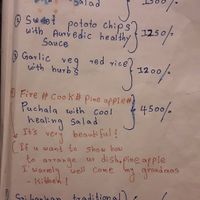 salad
② Sweet potato chips
with Aarvedic healthy
Sauce
1250/-
③ Garlic veg red rice
with hurbs
1200/-
④ Fire # Cook # pine apple #
Puchala with cool
healing salad
4500/-
It's very beautiful!
If u want to show how
to arrange us dish, pine apple
I warmly well come my grandmas
- Kitchen!
Sri Lankan traditional